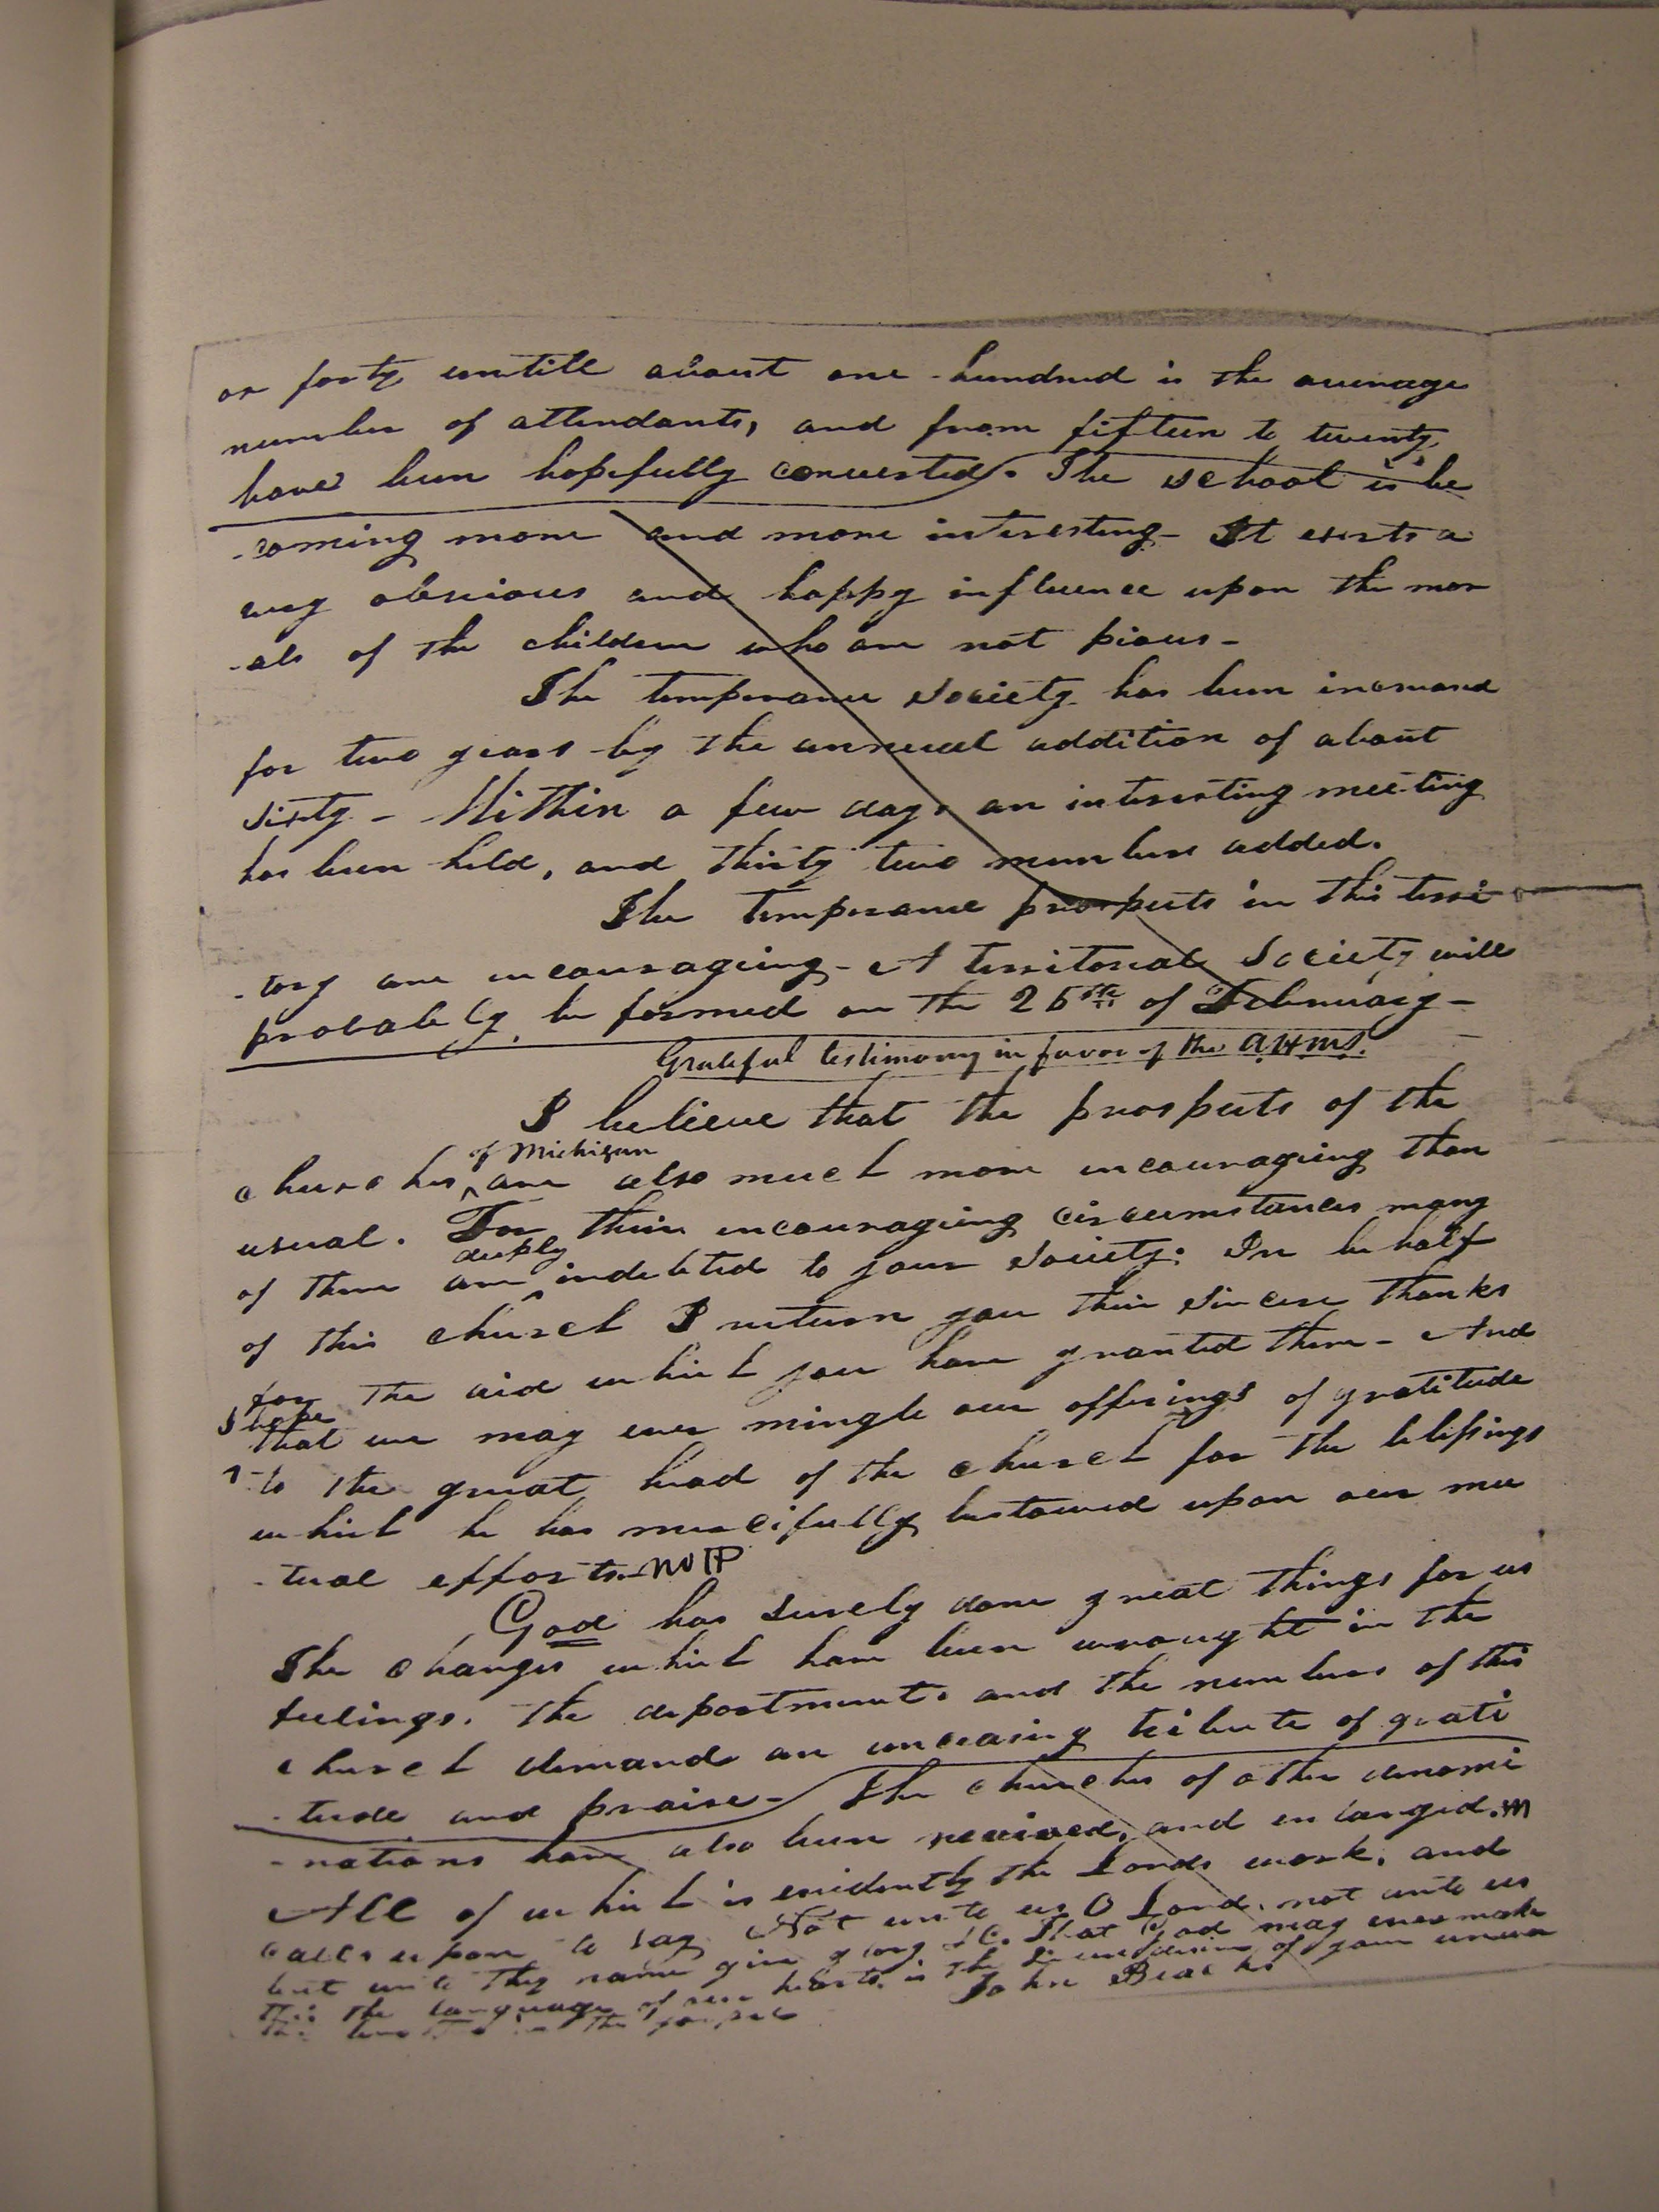 or forty untill about one hundred is the average
number of attendants, and from fifteen to twenty
have been hopefully converted. The school is be
-coming more and more interesting - It exerts a
very obvious and happy influence upon the mor
-als of the children who are not pious -
The temperance society has been increased
for two years by the annual addition of about
sixty - Within a few days an interesting meeting
has been held, and thirty two members added.
The temperance prospects in this terri
-tory are incouraging - A territorial Society will
probably be formed on the 26th of February -
Grateful testimony in favor of the A.H.M.S.
I believe that the prospects of the
of Michigan
churches are also much more incouraging than
usual. For their incouraging circumstances many
deeply
of them are indebted to your society: In behalf
of this church I return you their sincere thanks
for the aid which you have granted them - And
I hope
that we may ever mingle our offerings of gratitude
to the great head of the church for the blessings
which he has mercifully bestowed upon our mu
-tual efforts - No IP
God has surely done great things for us
The changes which have been wrought in the
feelings, the deportment, and the numbers of this
church demand an unceasing tribute of grati
-tude and praise - The churches of other denomi
-nations have also been revived, and enlarged.
All of which is evidently the Lords work, and
calls upon to say Not unto us O Lord, not unto us
but unto thy name give glory &c. That God may ever make
this the language of our hearts, is the sincere desire of your unwor
the in the gospel
John Beach